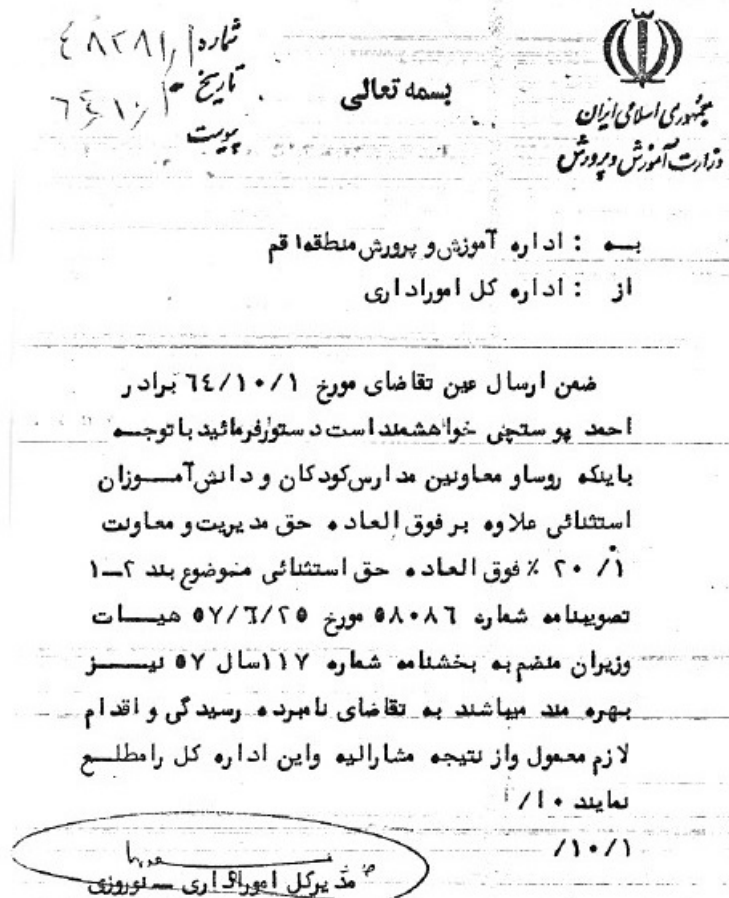 بسمه تعالی
جمهوری اسلامی ایران
وزارت آموزش و پرورش
شماره ٤٨٢٨١/١
تاریخ
پیوست
به : اداره آموزش و پرورش منطقه ۱ قم
از : اداره کل اموراداری
ضمن ارسال عین تقاضای مورخ ٦٤/١٠/١ برادر
احمد پوستچی خواهشمند است دستور فرمائید با توجـــه
باینکه روسا و معاونین مدارس کودکان و دانش‌آمـــوزان
استثنائی علاوه بر فوق العاده حق مدیریت و معاونت
۱/ ۲۰ ٪ فوق العاده حق استثنائی موضوع بند ۲ــ۱
تصویبنامه شماره ٥٨٠٨٦ مورخ ٥٧/٦/٢٥ هیـــات
وزیران منضم به بخشنامه شماره ۱۱۷ سال ٥٧ نیـــز
بهره مند میباشند به تقاضای نامبرده رسیدگی و اقدام
لازم معمول و از نتیجه مشارالیه و این اداره کل را مطلـــع
نمایند ۱۰/
/۱۰/۱
مدیرکل اموراداری ــ نوروزی